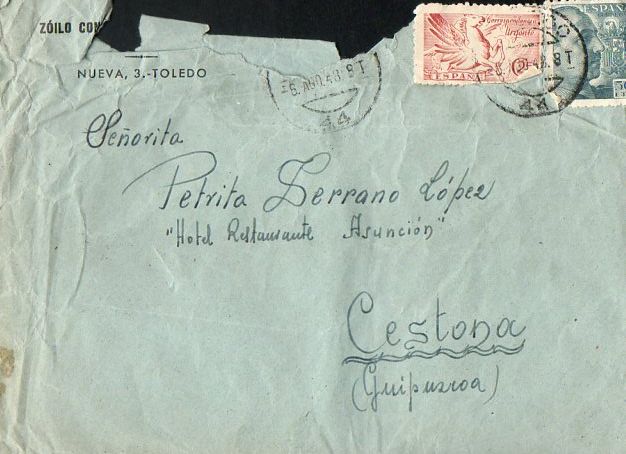 ZÓILO CON
NUEVA, 3.-TOLEDO
Correspondencia
Urgente
ESPAÑA
ESPAÑA
-6. AGO. 48. 8 T
44
-6. AGO. 48. 8 T
44
Señorita
Petrita Serrano López
"Hotel Restaurante Asunción"
Cestona
(Guipuzcoa)